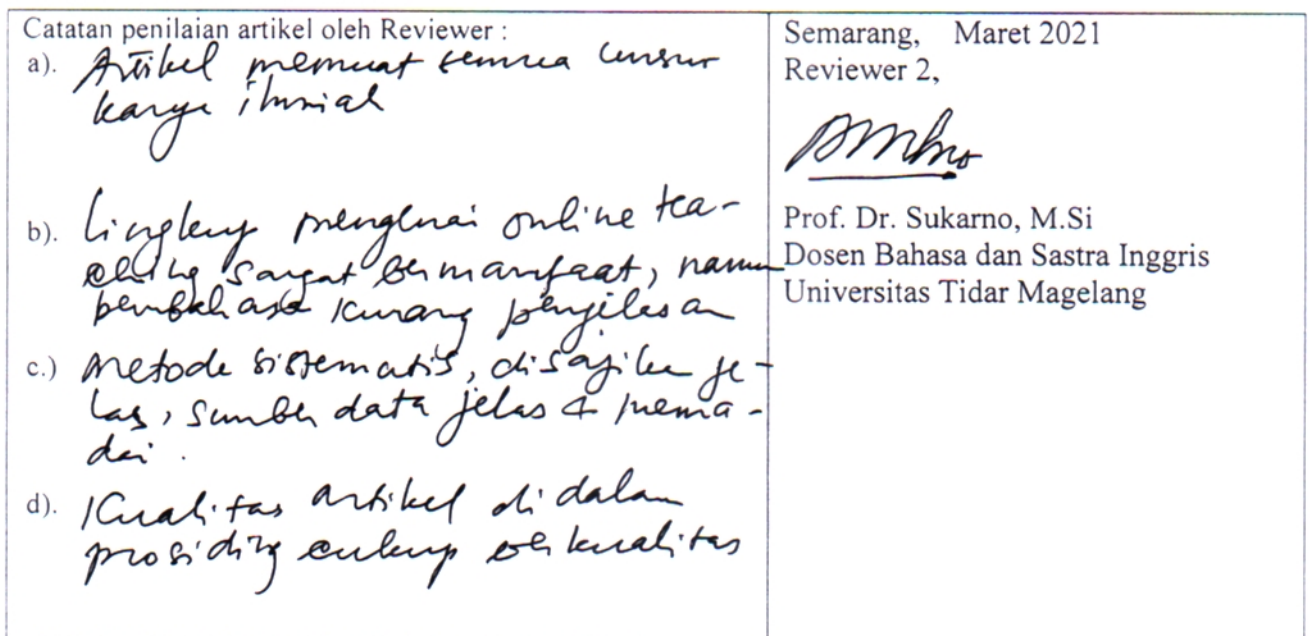 Catatan penilaian artikel oleh Reviewer :
a). Artikel memuat semua unsur
karya ilmiah
b). Lingkup mengenai online tea-
ching sangat bermanfaat, namun
pembahasa kurang penjelasan
c.) Metode sistematis, disajikan je-
las, sumber data jelas & mema-
dai.
d). Kualitas artikel di dalam
prosiding cukup berkualitas
Semarang, Maret 2021
Reviewer 2,
Prof. Dr. Sukarno, M.Si
Dosen Bahasa dan Sastra Inggris
Universitas Tidar Magelang